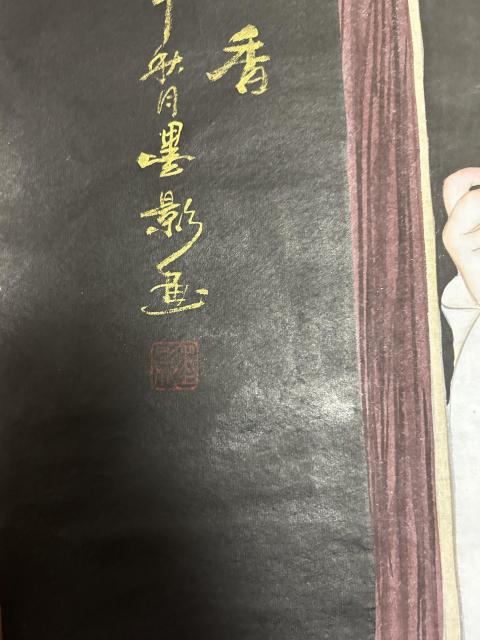 香
年秋月墨影画